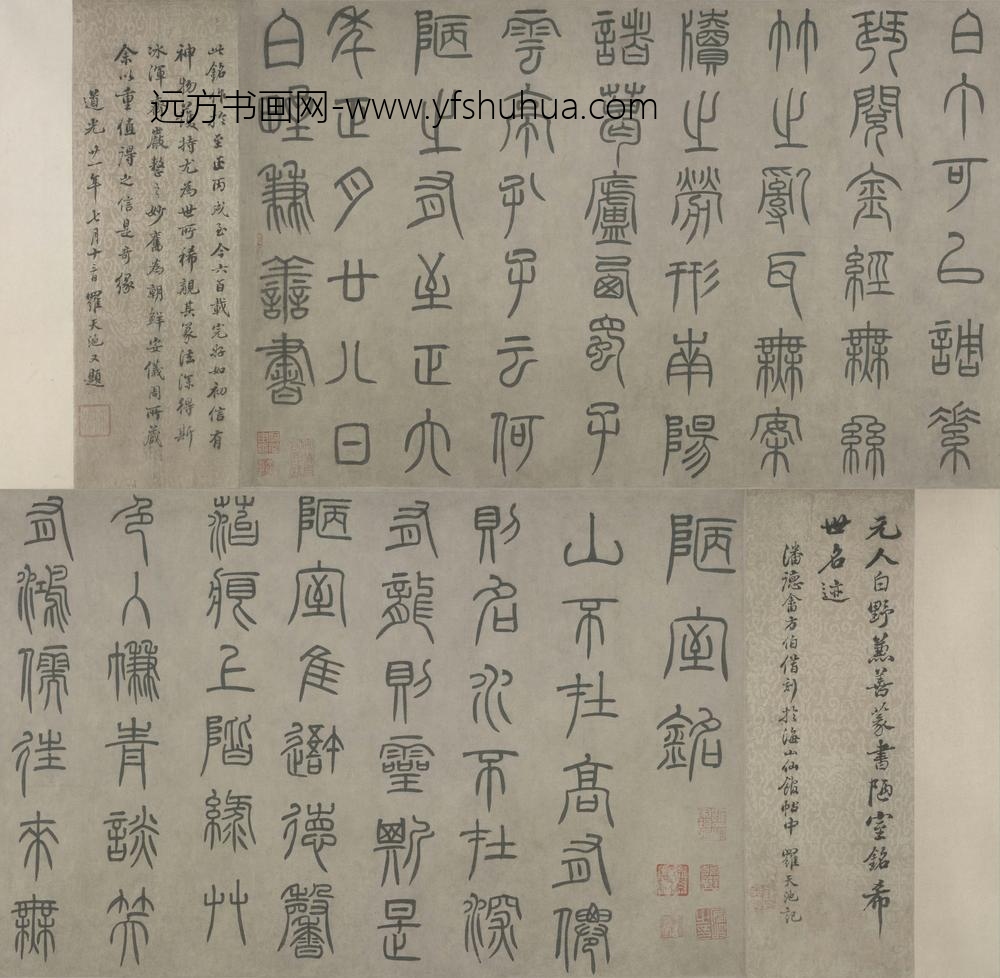 元人白野兼善篆書陋室銘希
世名迹
潘德畬方伯借刻於海山仙館帖中 羅天池記
陋室銘
山不在高有僊
則名水不在深
有龍則靈斯是
陋室隹吾德馨
菭痕上階綠艸
色入簾青談笑
有鴻儒往來無
白丁可以調素
琴閱金經無絲
竹之亂耳無案
牘之勞形南陽
諸葛廬西蜀子
雲亭孔子云何
陋之有至正六
年正月廿八日
白野兼善書
此銘至正丙戌至今六百載完好如初信有
神物持尤為世所稀覯其篆法深得斯
冰渾嚴整之妙舊為朝鮮安儀周所藏
余以重值得之信是奇緣
道光廿一年七月十三日 羅天池又題
远方书画网-www.yfshuhua.com